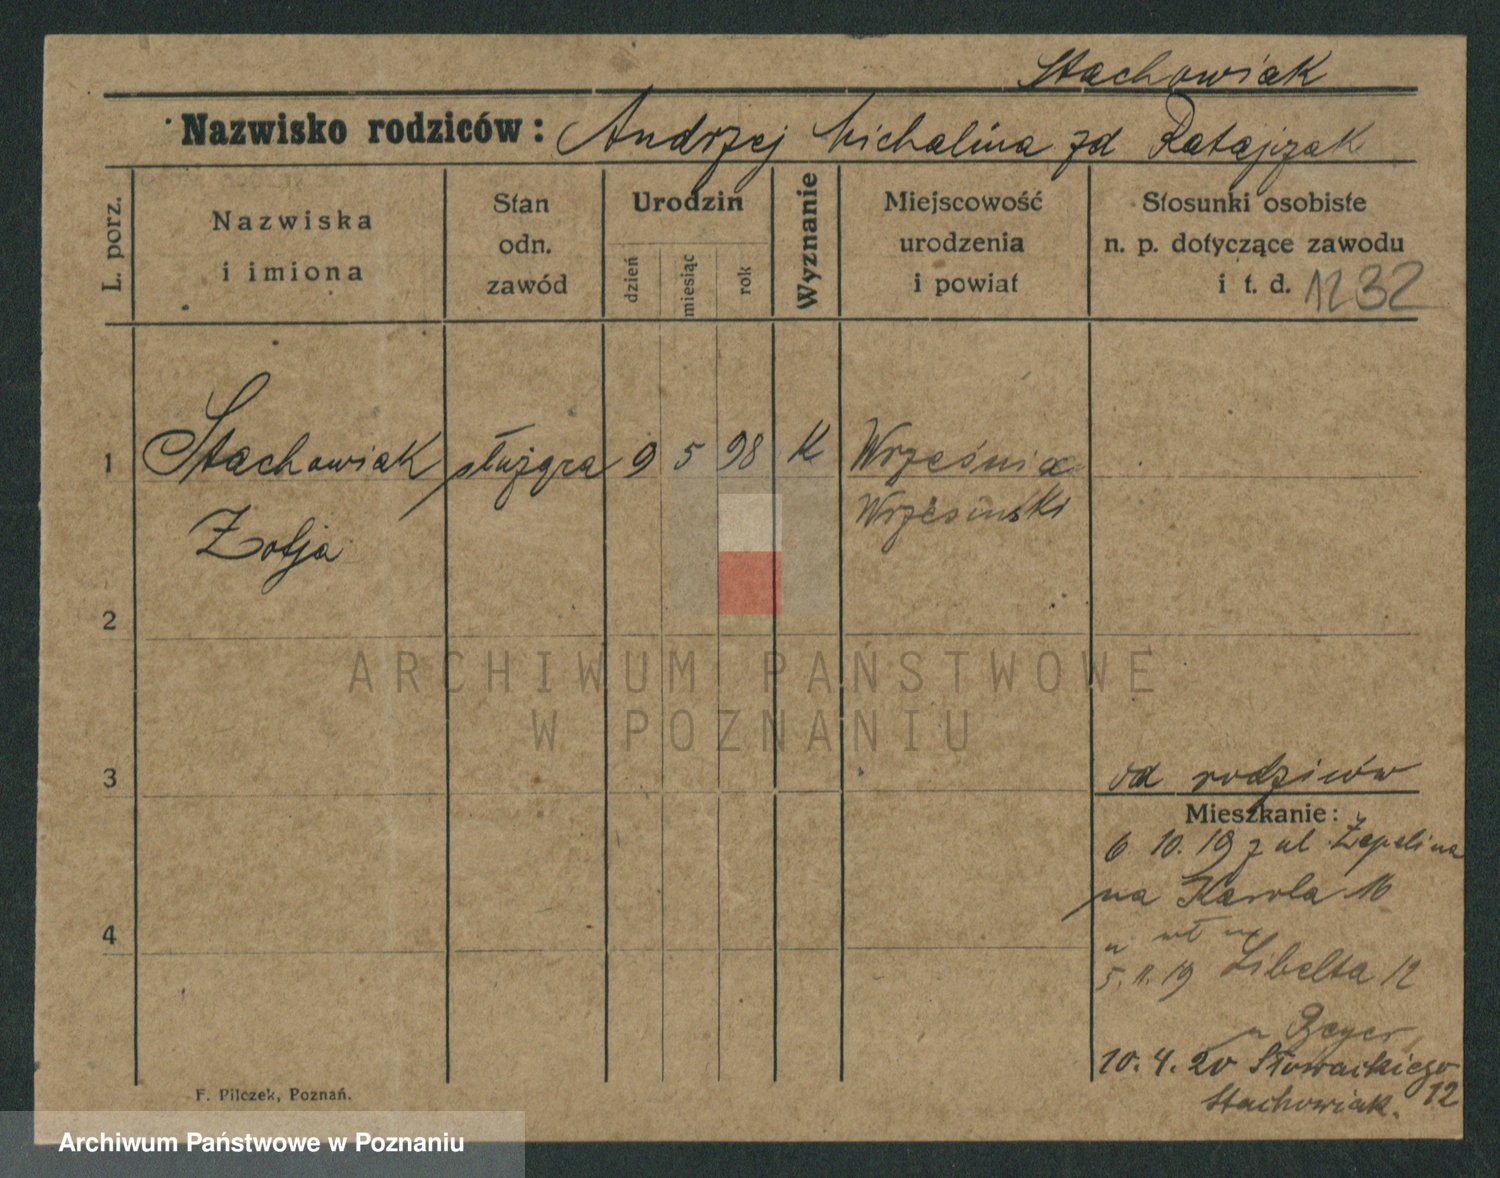 Stachowiak
Nazwisko rodziców: Andrzej Michalina zd Ratajczak
L. porz.
Nazwiska
i imiona
Stan
odn.
zawód
Urodzin
dzień
miesiąc
rok
Wyznanie
Miejscowość
urodzenia
i powiat
Stosunki osobiste
n. p. dotyczące zawodu
i t. d. 1232
1 Stachowiak służąca 9 5 98 K Września
Zofja Wrzesinski
2
ARCHIWUM PAŃSTWOWE
W POZNANIU
3
od rodziców
Mieszkanie:
6. 10. 19 z ul. Zepelina
na Karola 16
4
5. 11. 19 Libelta 12
u Beyer
10. 4. 20 Słowackiego
12
Stachowiak.
F. Pilczek, Poznań.
Archiwum Państwowe w Poznaniu